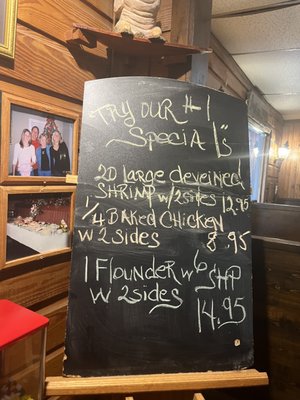 TRY OUR #1
Special's
20 large deveined
SHRIMP w/2sides 12.95
1/4 BAKED CHICKEN
W 2 sides 8.95
1 Flounder w 6 SHP
W 2sides 14.95